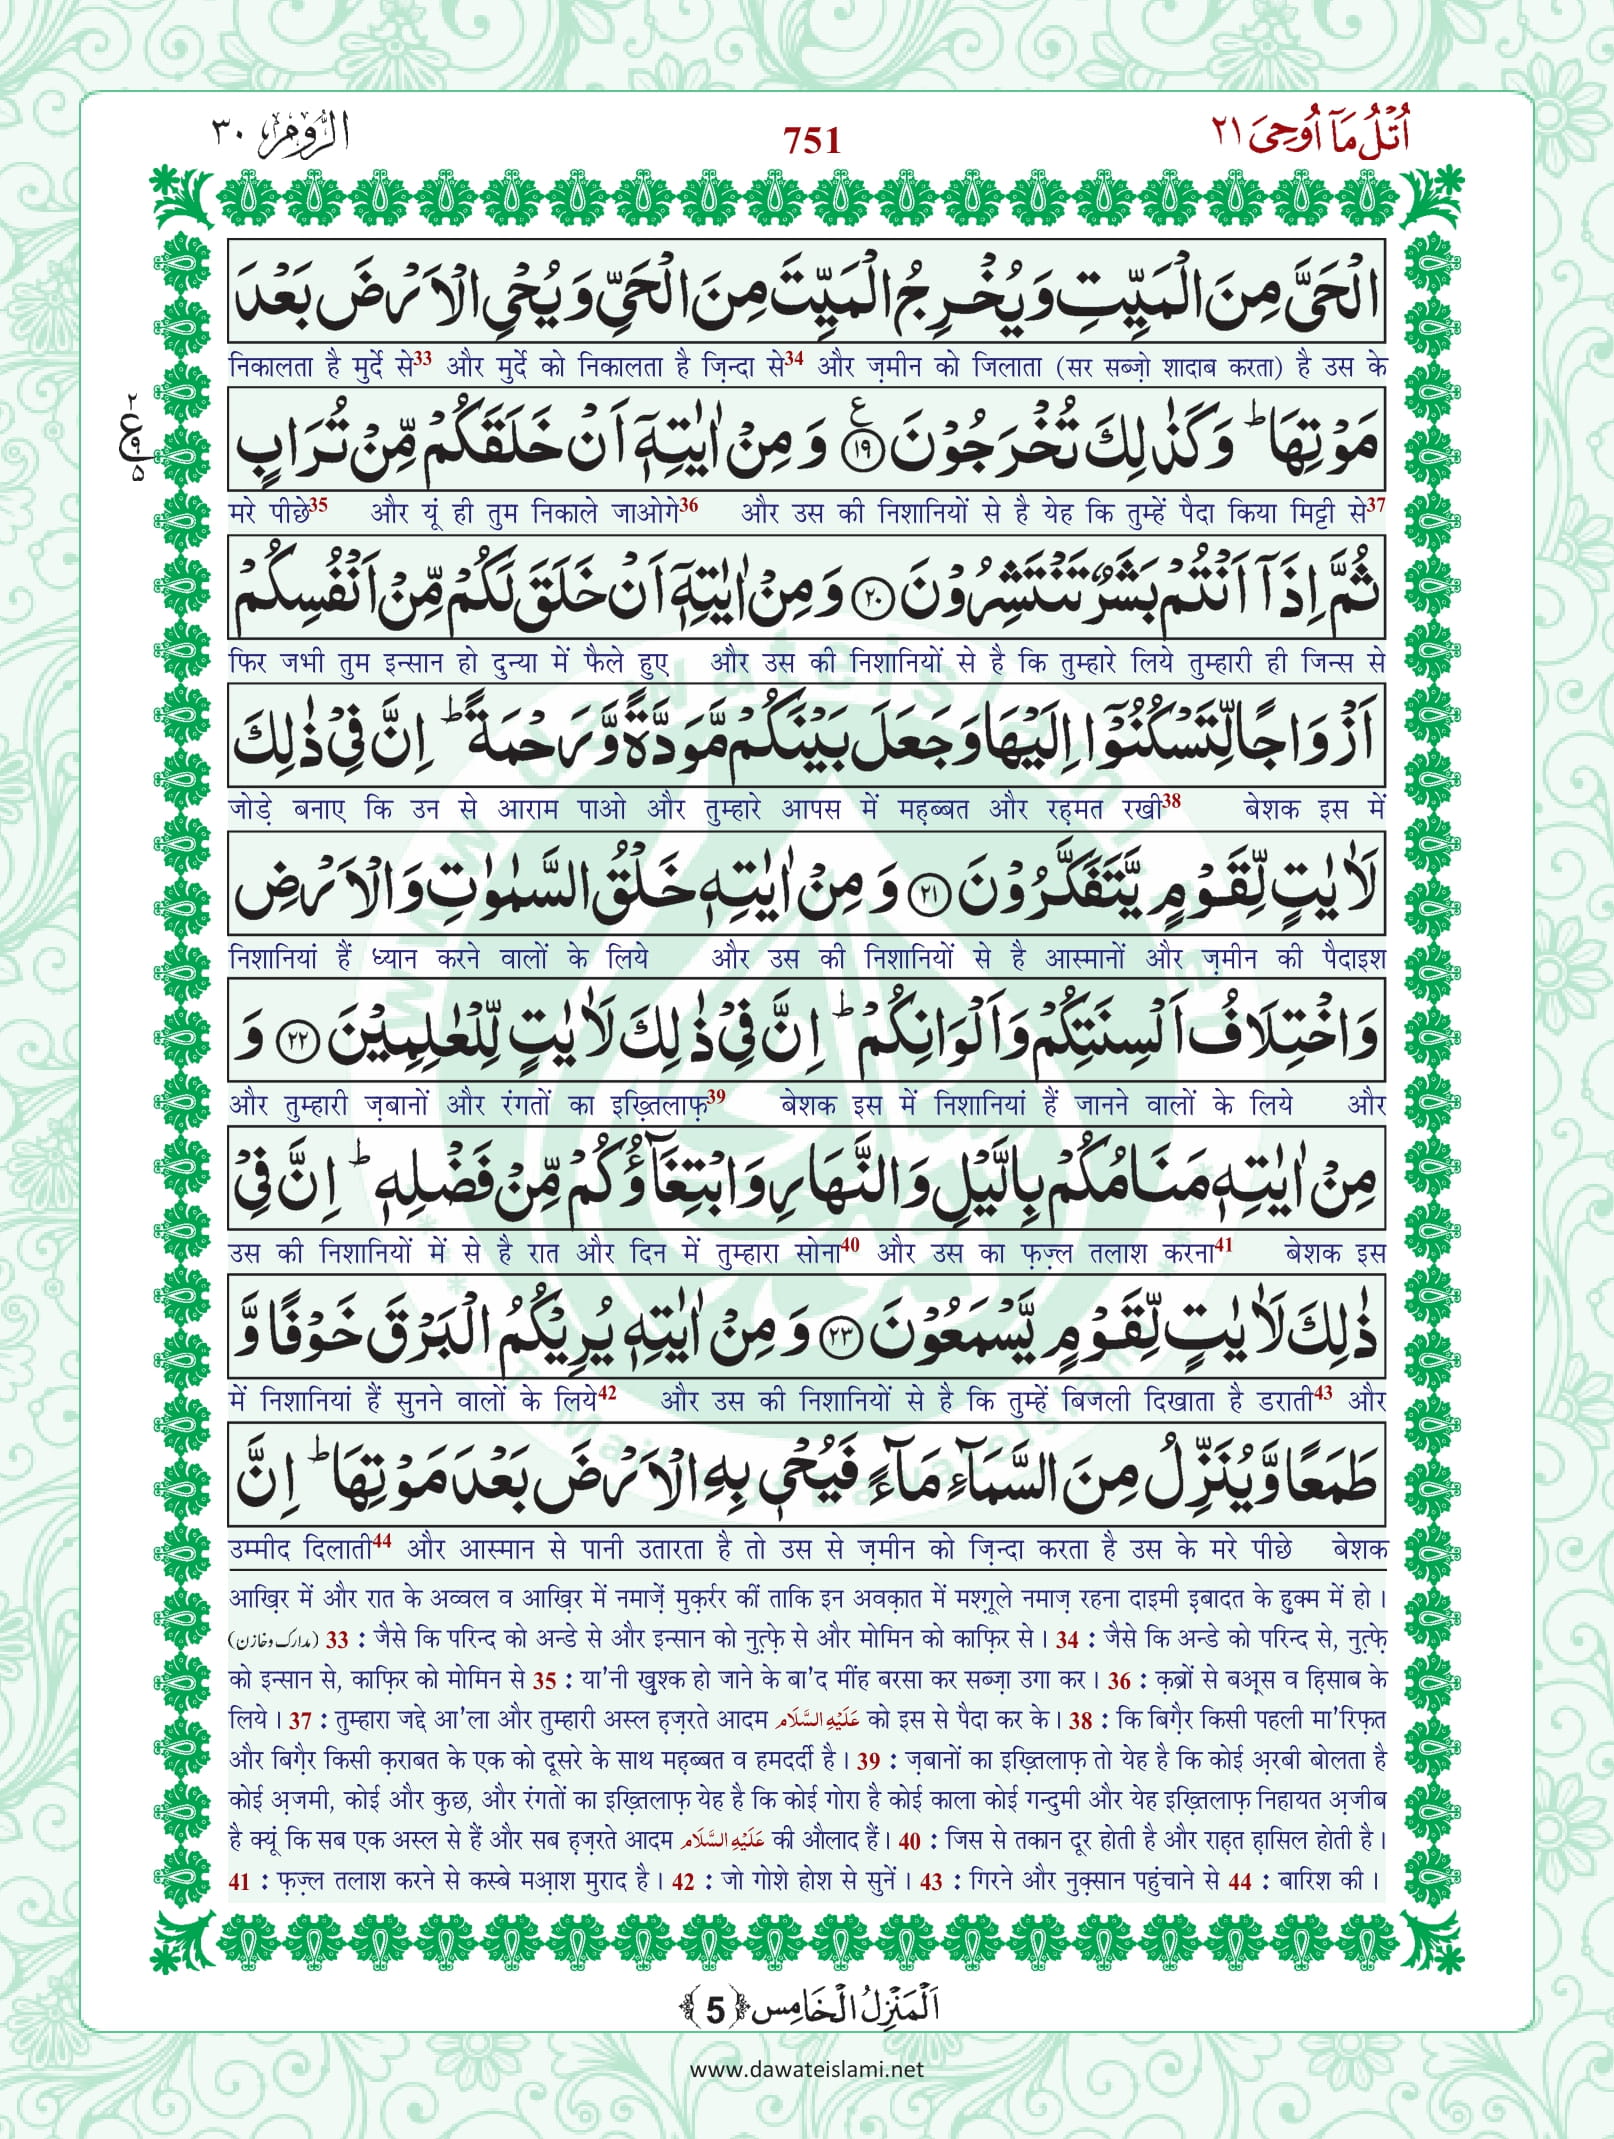 اُتْلُ مَآ اُوْحِیَ ٢١
751
الرُّوْم ٣٠
الْحَیَّ مِنَ الْمَیِّتِ وَیُخْرِجُ الْمَیِّتَ مِنَ الْحَیِّ وَیُحْیِ الْاَرْضَ بَعْدَ
निकालता है मुर्दे से33 और मुर्दे को निकालता है ज़िन्दा से34 और ज़मीन को जिलाता (सर सब्ज़ो शादाब करता) है उस के
مَوْتِهَا ؕ وَكَذٰلِكَ تُخْرَجُوْنَ ﴿١٩﴾ ع وَ مِنْ اٰیٰتِهٖۤ اَنْ خَلَقَكُمْ مِّنْ تُرَابٍ
٢ ع ٩ ٥
मरे पीछे35 और यूं ही तुम निकाले जाओगे36 और उस की निशानियों से है येह कि तुम्हें पैदा किया मिट्टी से37
ثُمَّ اِذَاۤ اَنْتُمْ بَشَرٌ تَنْتَشِرُوْنَ ﴿٢٠﴾ وَ مِنْ اٰیٰتِهٖۤ اَنْ خَلَقَ لَكُمْ مِّنْ اَنْفُسِكُمْ
फिर जभी तुम इन्सान हो दुन्या में फैले हुए और उस की निशानियों से है कि तुम्हारे लिये तुम्हारी ही जिन्स से
اَزْوَاجًا لِّتَسْكُنُوْۤا اِلَیْهَا وَ جَعَلَ بَیْنَكُمْ مَّوَدَّةً وَّ رَحْمَةً ؕ اِنَّ فِیْ ذٰلِكَ
जोड़े बनाए कि उन से आराम पाओ और तुम्हारे आपस में महब्बत और रह़मत रखी38 बेशक इस में
لَاٰیٰتٍ لِّقَوْمٍ یَّتَفَكَّرُوْنَ ﴿٢١﴾ وَ مِنْ اٰیٰتِهٖ خَلْقُ السَّمٰوٰتِ وَ الْاَرْضِ
निशानियां हैं ध्यान करने वालों के लिये और उस की निशानियों से है आस्मानों और ज़मीन की पैदाइश
وَ اخْتِلَافُ اَلْسِنَتِكُمْ وَ اَلْوَانِكُمْ ؕ اِنَّ فِیْ ذٰلِكَ لَاٰیٰتٍ لِّلْعٰلِمِیْنَ ﴿٢٢﴾ وَ
और तुम्हारी ज़बानों और रंगतों का इख़्तिलाफ़39 बेशक इस में निशानियां हैं जानने वालों के लिये और
مِنْ اٰیٰتِهٖ مَنَامُكُمْ بِالَّیْلِ وَ النَّهَارِ وَ ابْتِغَآؤُكُمْ مِّنْ فَضْلِهٖ ؕ اِنَّ فِیْ
उस की निशानियों में से है रात और दिन में तुम्हारा सोना40 और उस का फ़ज़्ल तलाश करना41 बेशक इस
ذٰلِكَ لَاٰیٰتٍ لِّقَوْمٍ یَّسْمَعُوْنَ ﴿٢٣﴾ وَ مِنْ اٰیٰتِهٖ یُرِیْكُمُ الْبَرْقَ خَوْفًا وَّ
में निशानियां हैं सुनने वालों के लिये42 और उस की निशानियों से है कि तुम्हें बिजली दिखाता है डराती43 और
طَمَعًا وَّ یُنَزِّلُ مِنَ السَّمَآءِ مَآءً فَیُحْیٖ بِهِ الْاَرْضَ بَعْدَ مَوْتِهَا ؕ اِنَّ
उम्मीद दिलाती44 और आस्मान से पानी उतारता है तो उस से ज़मीन को ज़िन्दा करता है उस के मरे पीछे बेशक
आखि़र में और रात के अव्वल व आखि़र में नमाजे़ं मुक़र्रर कीं ताकि इन अवक़ात में मश्ग़ूले नमाज़ रहना दाइमी इ़बादत के हु़क्म में हो ।
(مدارک وخازن) 33 : जैसे कि परिन्द को अन्डे से और इन्सान को नुत़्फ़े से और मोमिन को काफ़िर से । 34 : जैसे कि अन्डे को परिन्द से, नुत़्फ़े
को इन्सान से, काफ़िर को मोमिन से 35 : या'नी खु़श्क हो जाने के बा'द मींह बरसा कर सब्ज़ा उगा कर । 36 : क़ब्रों से बअ़्स व हि़साब के
लिये । 37 : तुम्हारा जद्दे आ'ला और तुम्हारी अस्ल ह़ज़रते आदम عَلَیْهِ السَّلَام को इस से पैदा कर के । 38 : कि बिग़ैर किसी पहली मा'रिफ़त
और बिग़ैर किसी क़राबत के एक को दूसरे के साथ महब्बत व हमदर्दी है । 39 : ज़बानों का इख़्तिलाफ़ तो येह है कि कोई अ़रबी बोलता है
कोई अ़जमी, कोई और कुछ, और रंगतों का इख़्तिलाफ़ येह है कि कोई गोरा है कोई काला कोई गन्दुमी और येह इख़्तिलाफ़ निहायत अ़जीब
है क्यूं कि सब एक अस्ल से हैं और सब ह़ज़रते आदम عَلَیْهِ السَّلَام की औलाद हैं । 40 : जिस से तकान दूर होती है और राह़त ह़ासिल होती है ।
41 : फ़ज़्ल तलाश करने से कस्बे मआ़श मुराद है । 42 : जो गोशे होश से सुनें । 43 : गिरने और नुक़्सान पहुंचाने से 44 : बारिश की ।
اَلْمَنْزِلُ الْخَامِس ﴿5﴾
www.dawateislami.net